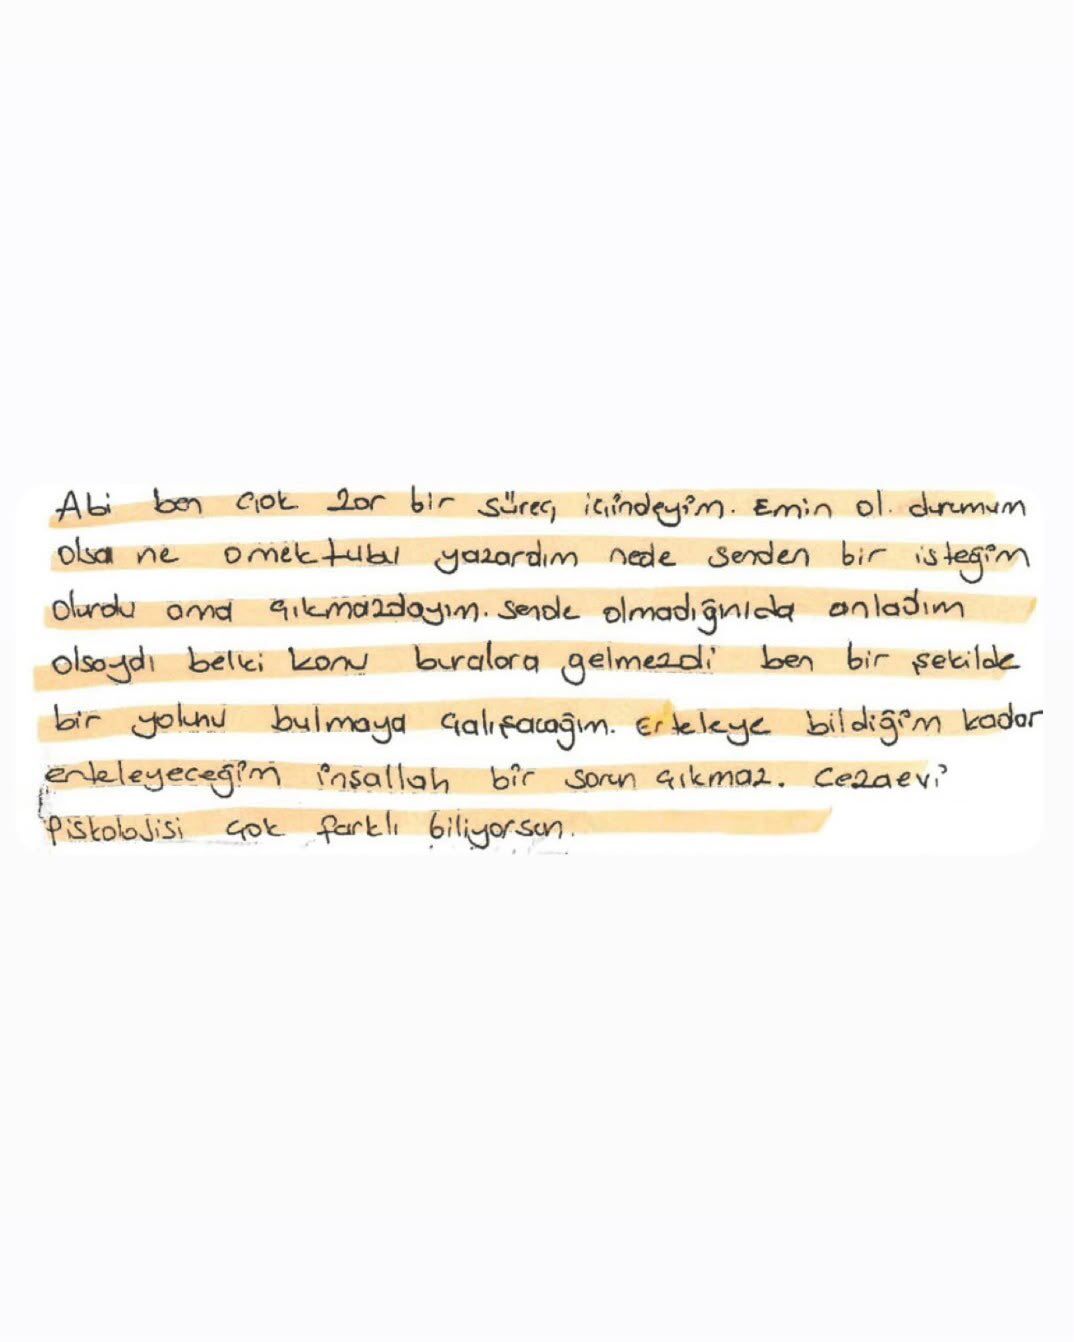 Abi ben çok zor bir süreç içindeyim. Emin ol. durumum
olsa ne o mektubu yazardım nede senden bir isteğim
olurdu ama çıkmazdayım. sende olmadığınıda anladım
olsaydı belki konu buralara gelmezdi ben bir şekilde
bir yolunu bulmaya çalışacağım. Erteleye bildiğim kadar
erteleyeceğim inşallah bir sorun çıkmaz. Cezaevi
Piskolojisi çok farklı biliyorsun.